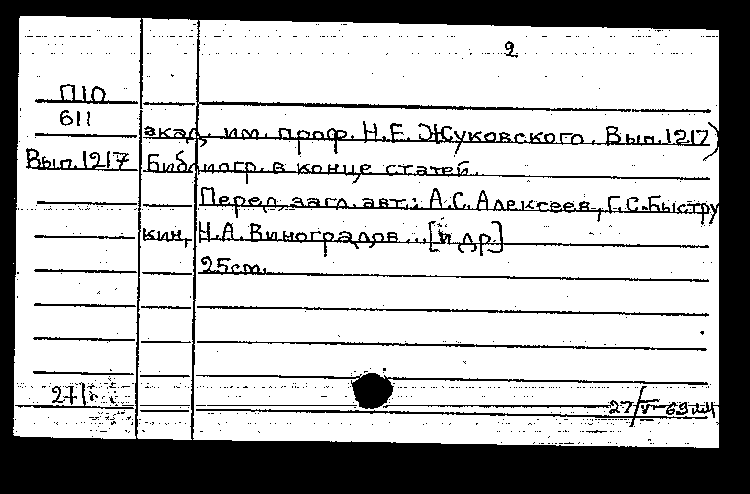 2
П10
611
акад. им. проф. Н.Е. Жуковского. Вып.1217)
Вып.1217 Библиогр. в конце статей.
Перед загл. авт.: А.С. Алексеев, Г.С. Быстру
кин, Н.А. Виноградов...[и др.]
25 cm.
27/V-69